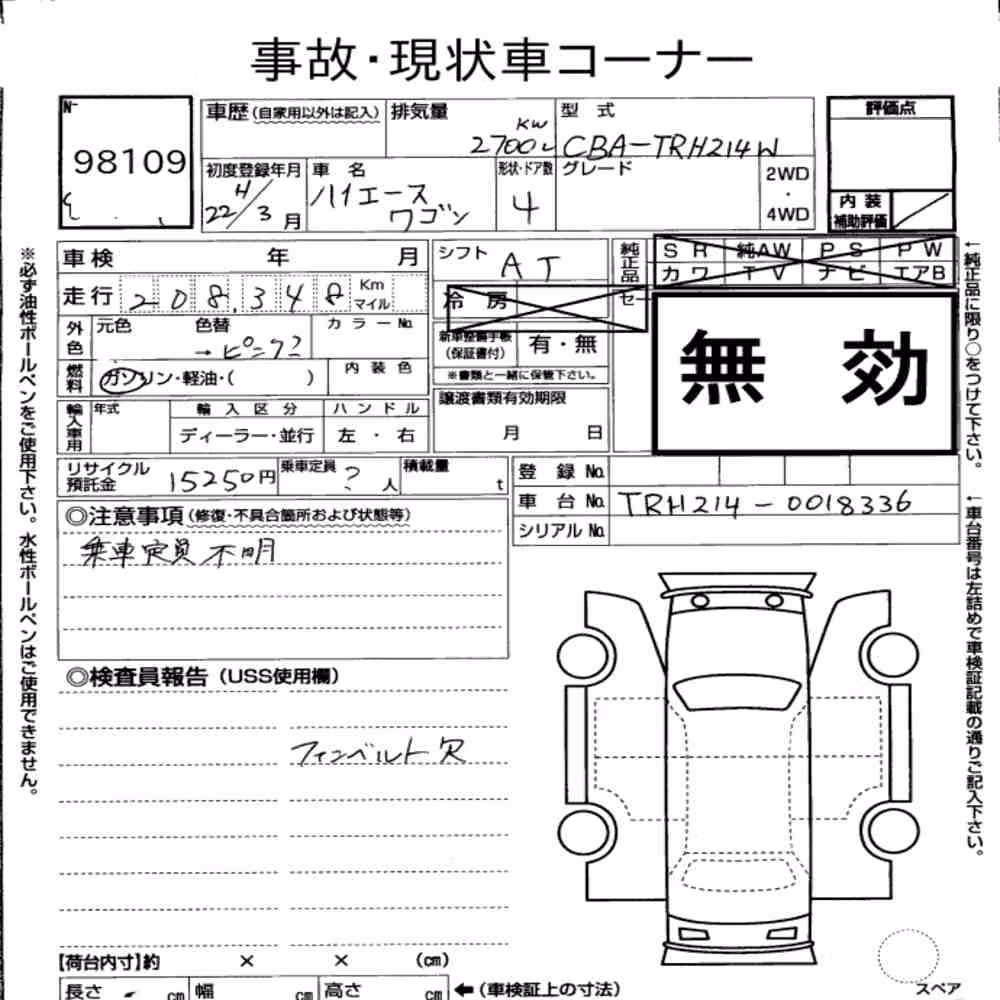 事故・現状車コーナー
車歴 (自家用以外は記入) 排気量 型式 評価点
98109
KW
2700 L CBA-TRH214W
初度登録年月 車名 形状・ドア数 グレード 2WD
・
4WD
H
22/3月 ハイエース
ワゴン 4
内装
補助評価
車検 年 月 シフト AT 純正品 SR 純AW PS PW
カワ TV ナビ エアB
走行 208,348 Km
マイル
冷房 セー
外色 元色 色替 カラーNo.
→ピンク?
新車整備手帳
(保証書付) 有・無
※書類と一緒に保管下さい。
無効
燃料 ガソリン・軽油・( ) 内装色
輸入車用 年式 輸入区分 ハンドル
ディーラー・並行 左・右
譲渡書類有効期限
月 日
リサイクル
預託金 15250円 乗車定員 ? 人 積載量 t
登録No.
車台No. TRH214-0018336
シリアルNo.
◎注意事項 (修復・不具合箇所および状態等)
乗車定員不明
◎検査員報告 (USS使用欄)
ファンベルト欠
【荷台内寸】約 × × (cm)
長さ cm 幅 cm 高さ cm ←(車検証上の寸法)
スペア
※必ず油性ボールペンをご使用下さい。水性ボールペンはご使用できません。
←純正品に限り○をつけて下さい。
←車台番号は左詰めで車検証記載の通りご記入下さい。